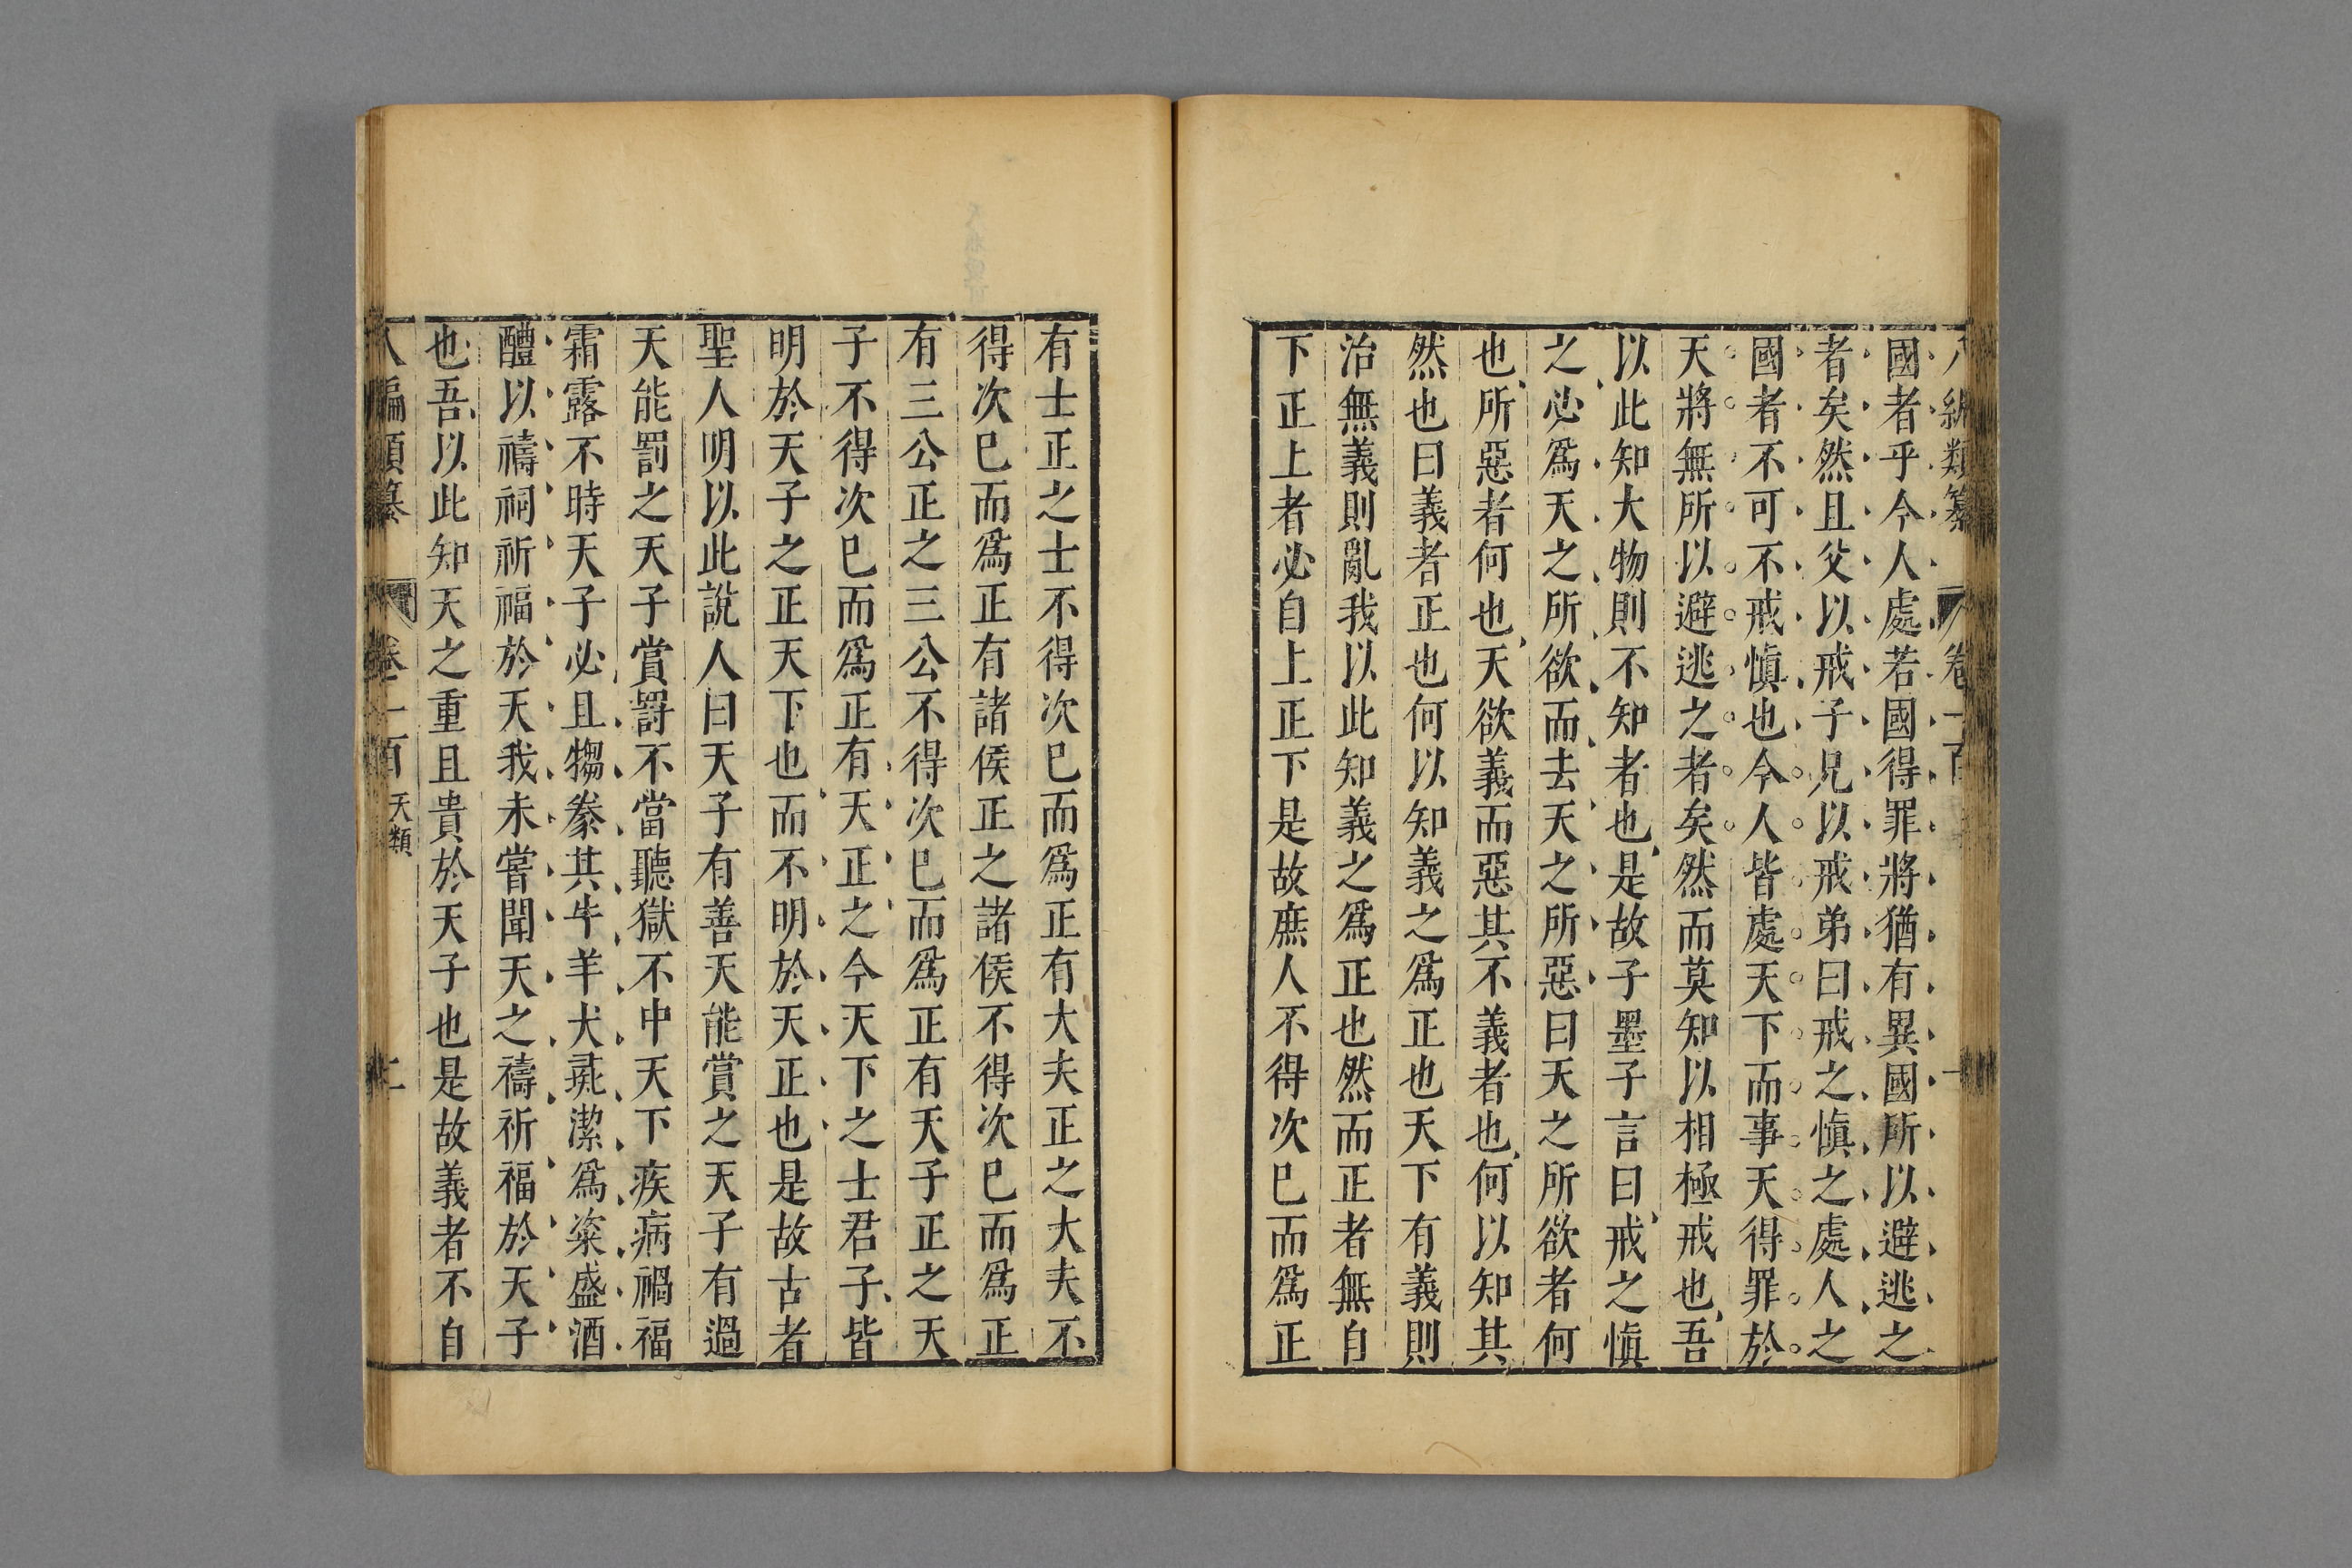 八編類纂 卷一百 一
國者乎今人處若國得罪將猶有異國所以避逃之
者矣然且父以戒子兄以戒弟曰戒之愼之處人之
國者不可不戒愼也今人皆處天下而事天得罪於
天將無所以避逃之者矣然而莫知以相極戒也吾
以此知大物則不知者也是故子墨子言曰戒之愼
之必爲天之所欲而去天之所惡曰天之所欲者何
也所惡者何也天欲義而惡其不義者也何以知其
然也曰義者正也何以知義之爲正也天下有義則
治無義則亂我以此知義之爲正也然而正者無自
下正上者必自上正下是故庶人不得次已而爲正
有士正之士不得次已而爲正有大夫正之大夫不
得次已而爲正有諸侯正之諸侯不得次已而爲正
有三公正之三公不得次已而爲正有天子正之天
子不得次已而爲正有天正之今天下之士君子皆
明於天子之正天下也而不明於天正也是故古者
聖人明以此說人曰天子有善天能賞之天子有過
天能罰之天子賞罰不當聽獄不中天下疾病禍福
霜露不時天子必且犓豢其牛羊犬彘潔爲粢盛酒
醴以禱祠祈福於天我未嘗聞天之禱祈福於天子
也吾以此知天之重且貴於天子也是故義者不自
八編類纂 卷一百 天類 二